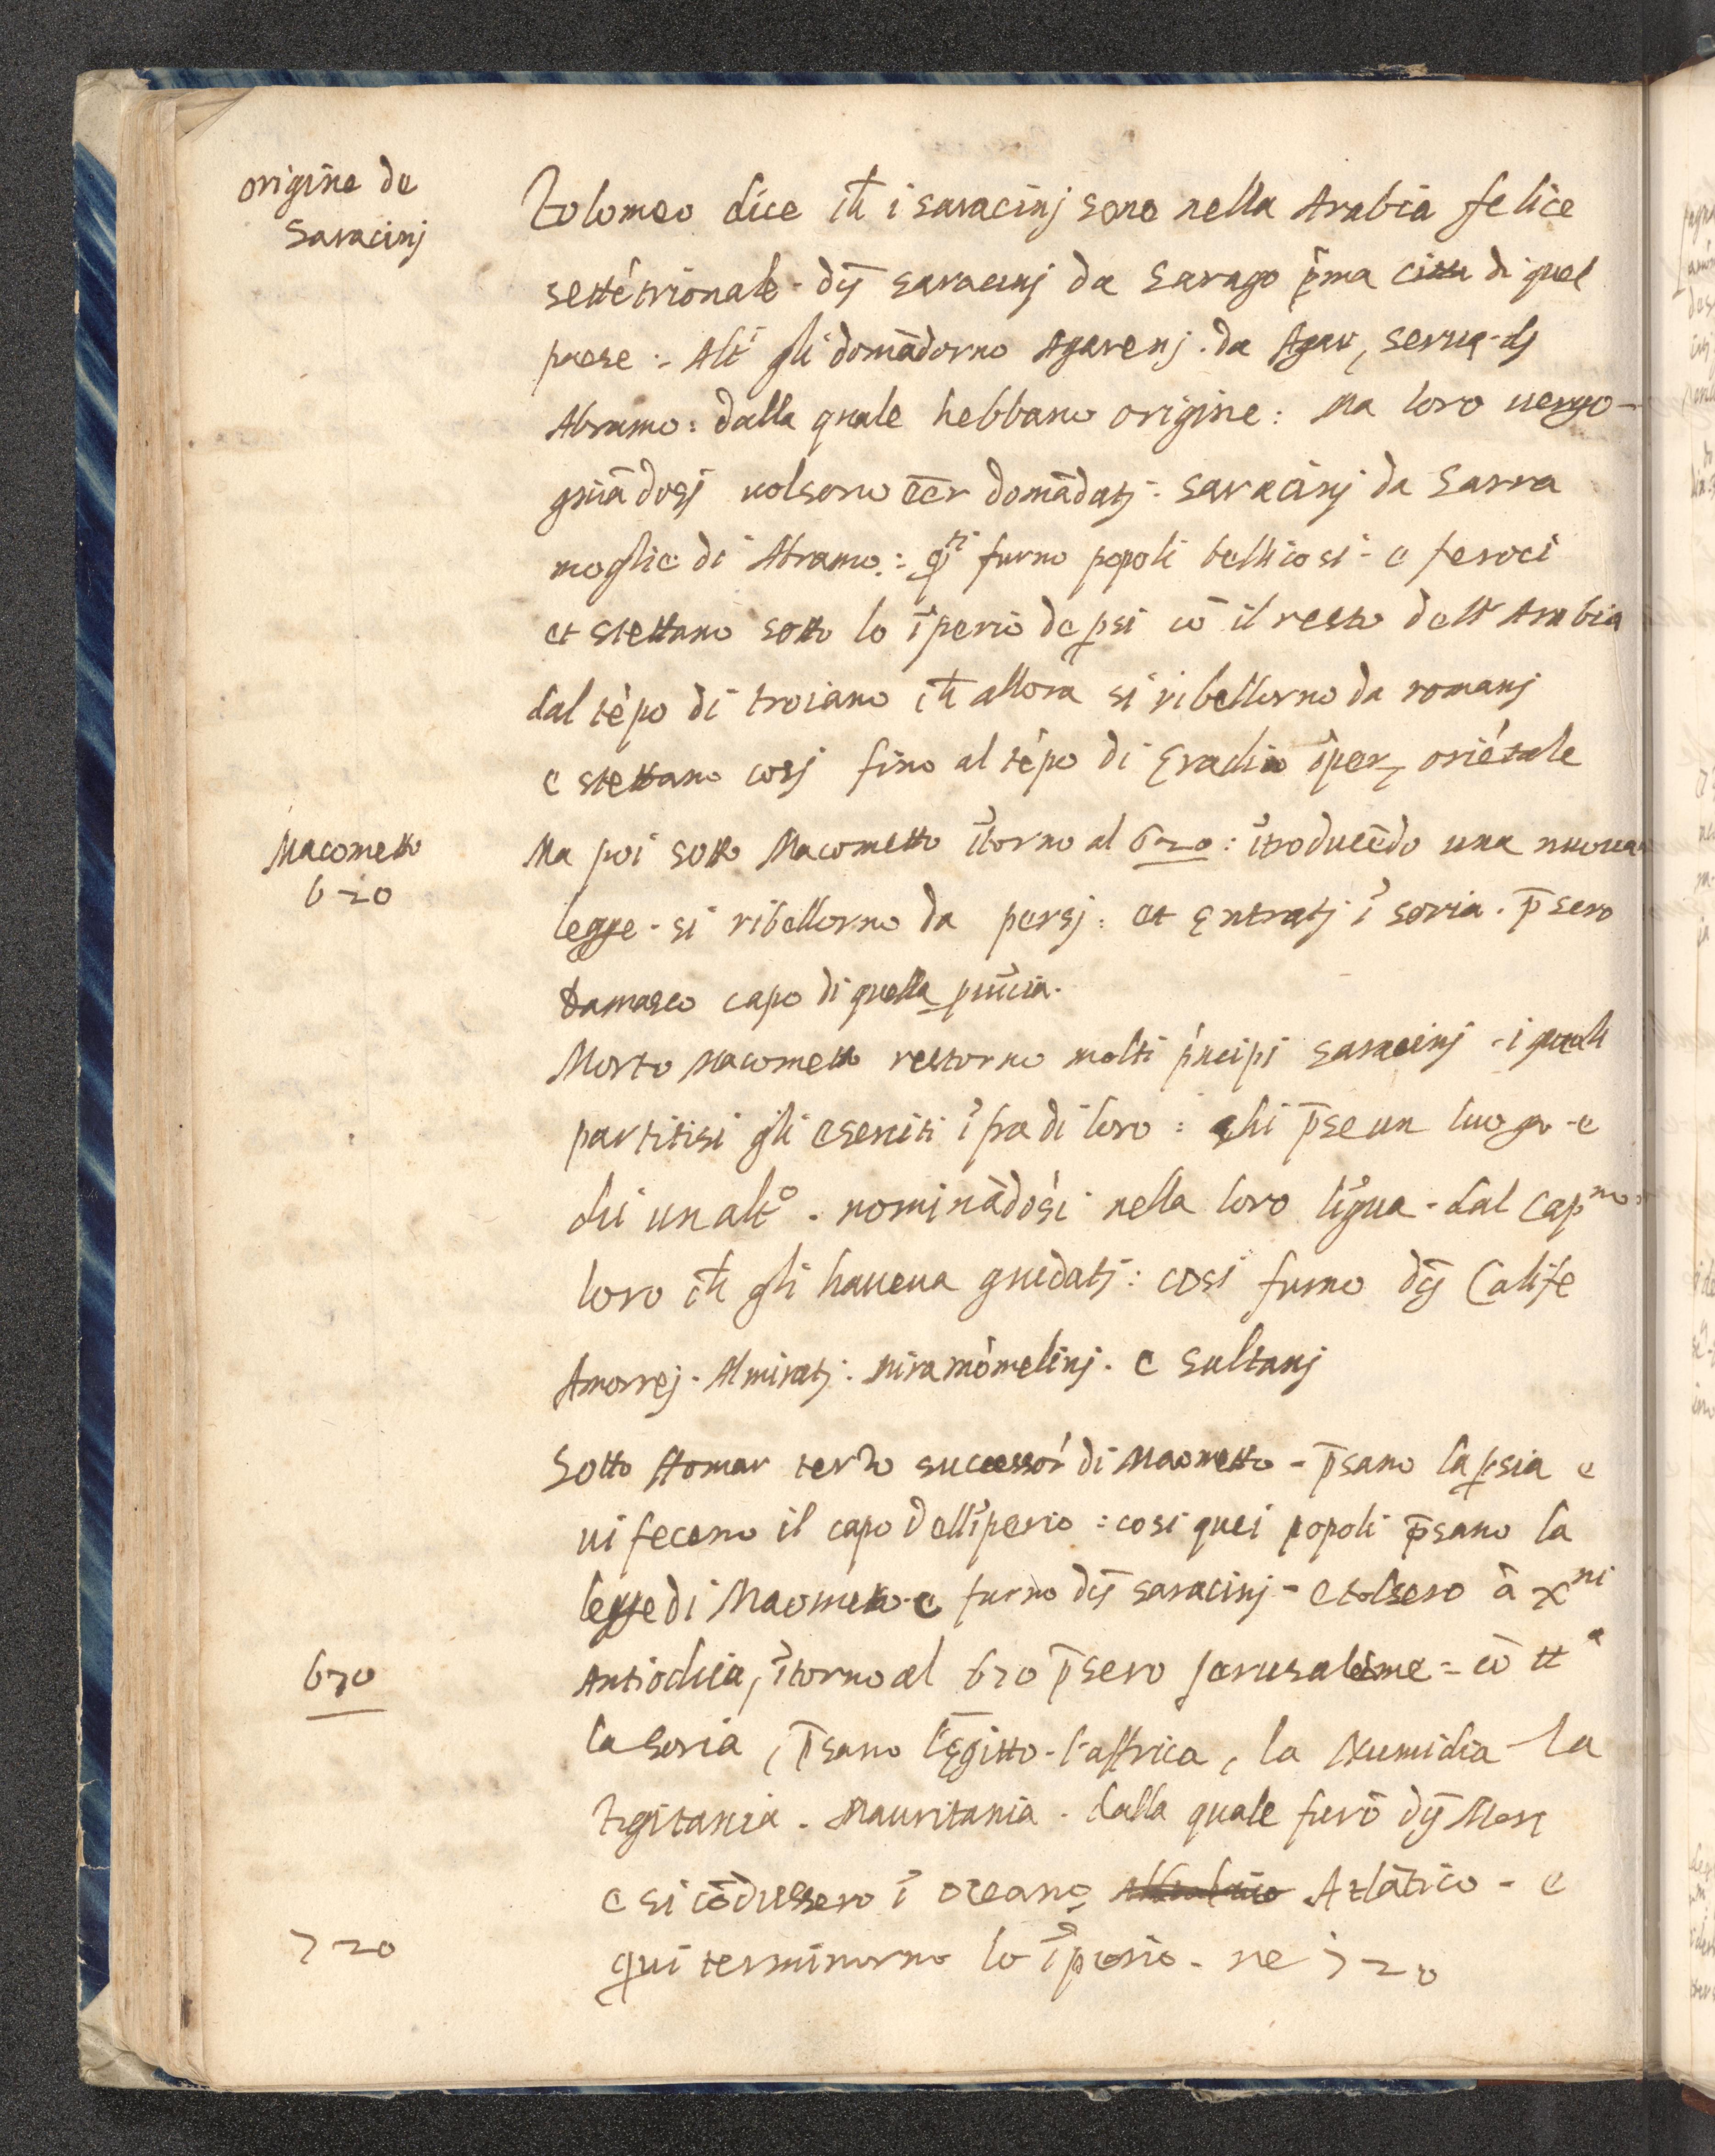 origine de
Saracinj
Tolomeo dice ch̄ i saracinj sono nella Arabia felice
settētrionale - dj̄ saracinj da Sarago p̄ma citta di quel
paese :- Alt̄i gli domādorno Agarenj . da Agar, serua dj
Abramo : dalla quale hebbano origine : Ma loro uergo-
gniādosj uolsono ēēr domādatj : Saracinj da Sarra
moglie di Abramo : q^ti furno popoli bellicosi - e feroci
et stettano sotto lo īperio de ꝑsi cō il resto dell Arabia
dal tēpo di troiano ch̄ allora si ribellorno da romanj
e stettano cosj fino al tēpo di Eraclio īper, oriētale
Macometto
620
Ma poi sotto Macometto ītorno al 620 : ītroducēdo una nuoua
legge - si ribellorno da persj : et Entratj ī soria . p̄sero
Damasco capo di quella ꝓuīcia .
Morto Macometto restorno molti p̄ncipi saracinj - i quali
partitisi gli eserciti ī fra di loro : chi p̄se un luogo - e
chi un alt^o . nominādosi nella loro līgua - dal cap^no
loro ch̄ gli haueua guidatj : cosi furno dj̄ Calife
Amorrej - Almiratj : miramōmelinj . e Sultanj
Sotto Homar terzo successor di Maometto - p̄sano la ꝑsia e
ui feceno il capo dell īperio : cosi quei popoli p̄sano la
legge di Maometto - e furno dj̄ saracinj - e tolsero à x^ni
630
Antiochia, ītorno al 630 p̄sero Jerusaleme = cō tt^a
la Soria, p̄sano l Egitto - l affrica, la Numidia - la
Tigitania . Mauritania . dalla quale furō dj̄ Mori
e si cōdussero ī oceano Atlātico - e
720
qui terminorno lo īperio - ne 720